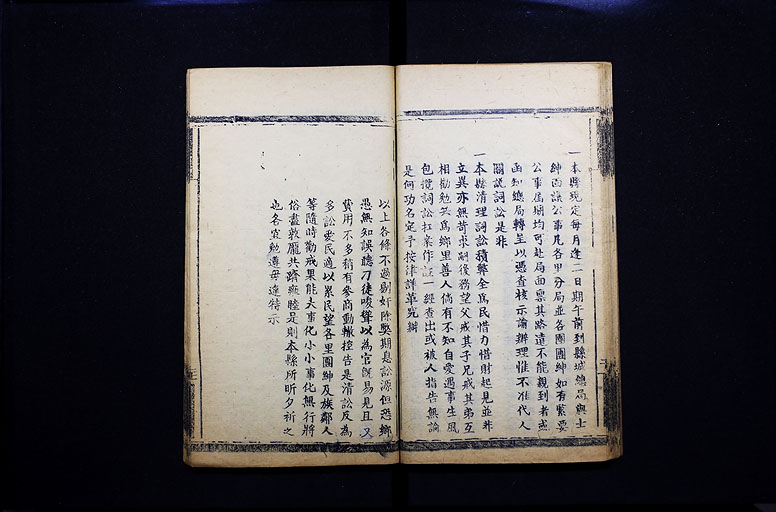 一本縣現定每月逢二日期午前到縣城總局與士
紳面議公事凡各甲分局並各團團紳如有緊要
公事居期均可赴局面禀其路遠不能親到者或
函知總局轉呈以憑查核示諭辦理惟不准代人
關說詞訟是非
一本縣清理詞訟積弊全爲民惜力惜財起見並非
立異亦無苛求嗣後務望父戒其子兄戒其弟互
相勸勉共爲鄉里善人倘有不知自愛遇事生風
包攬詞訟扛案作証一經查出或被人指告無論
是何功名定予按律詳革究辦
以上各條不過剔奸除弊期息訟源但恐鄉
愚無知誤聽刁徒唆聳以為官旣易見且又
費用不多稍有參商動輒控告是清訟反為
多訟愛民適以累民望各里團紳及族鄰人
等隨時勸戒果能大事化小小事化無行將
俗盡敦龐共躋雍睦是則本縣所昕夕祈之
也各宜勉遵毋違特示